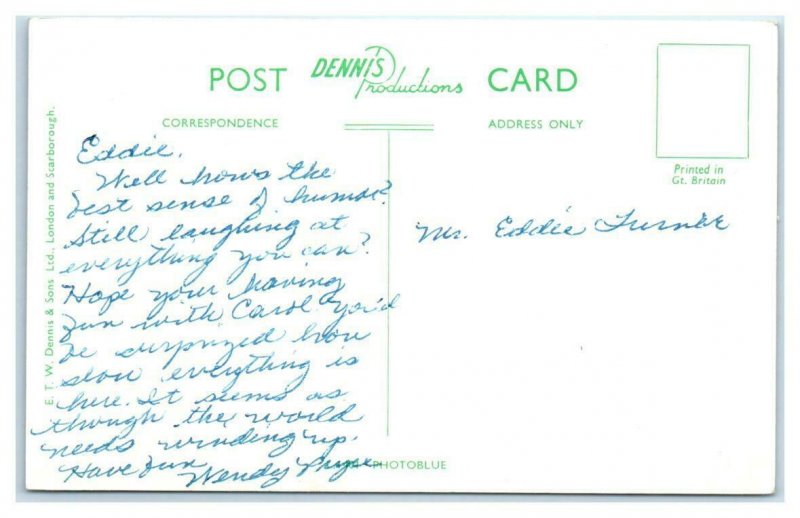 POST DENNIS Productions CARD
CORRESPONDENCE
ADDRESS ONLY
Printed in
Gt. Britain
E. T. W. Dennis & Sons Ltd., London and Scarborough.
Eddie,
Well hows the
best sense of humor?
Still laughing at
everything you can?
Hope your having
fun with Carol you'd
be surprized how
slow everything is
here. It seems as
though the world
needs winding up.
Have fun
Wendy
Mr. Eddie Turner
PHOTOBLUE